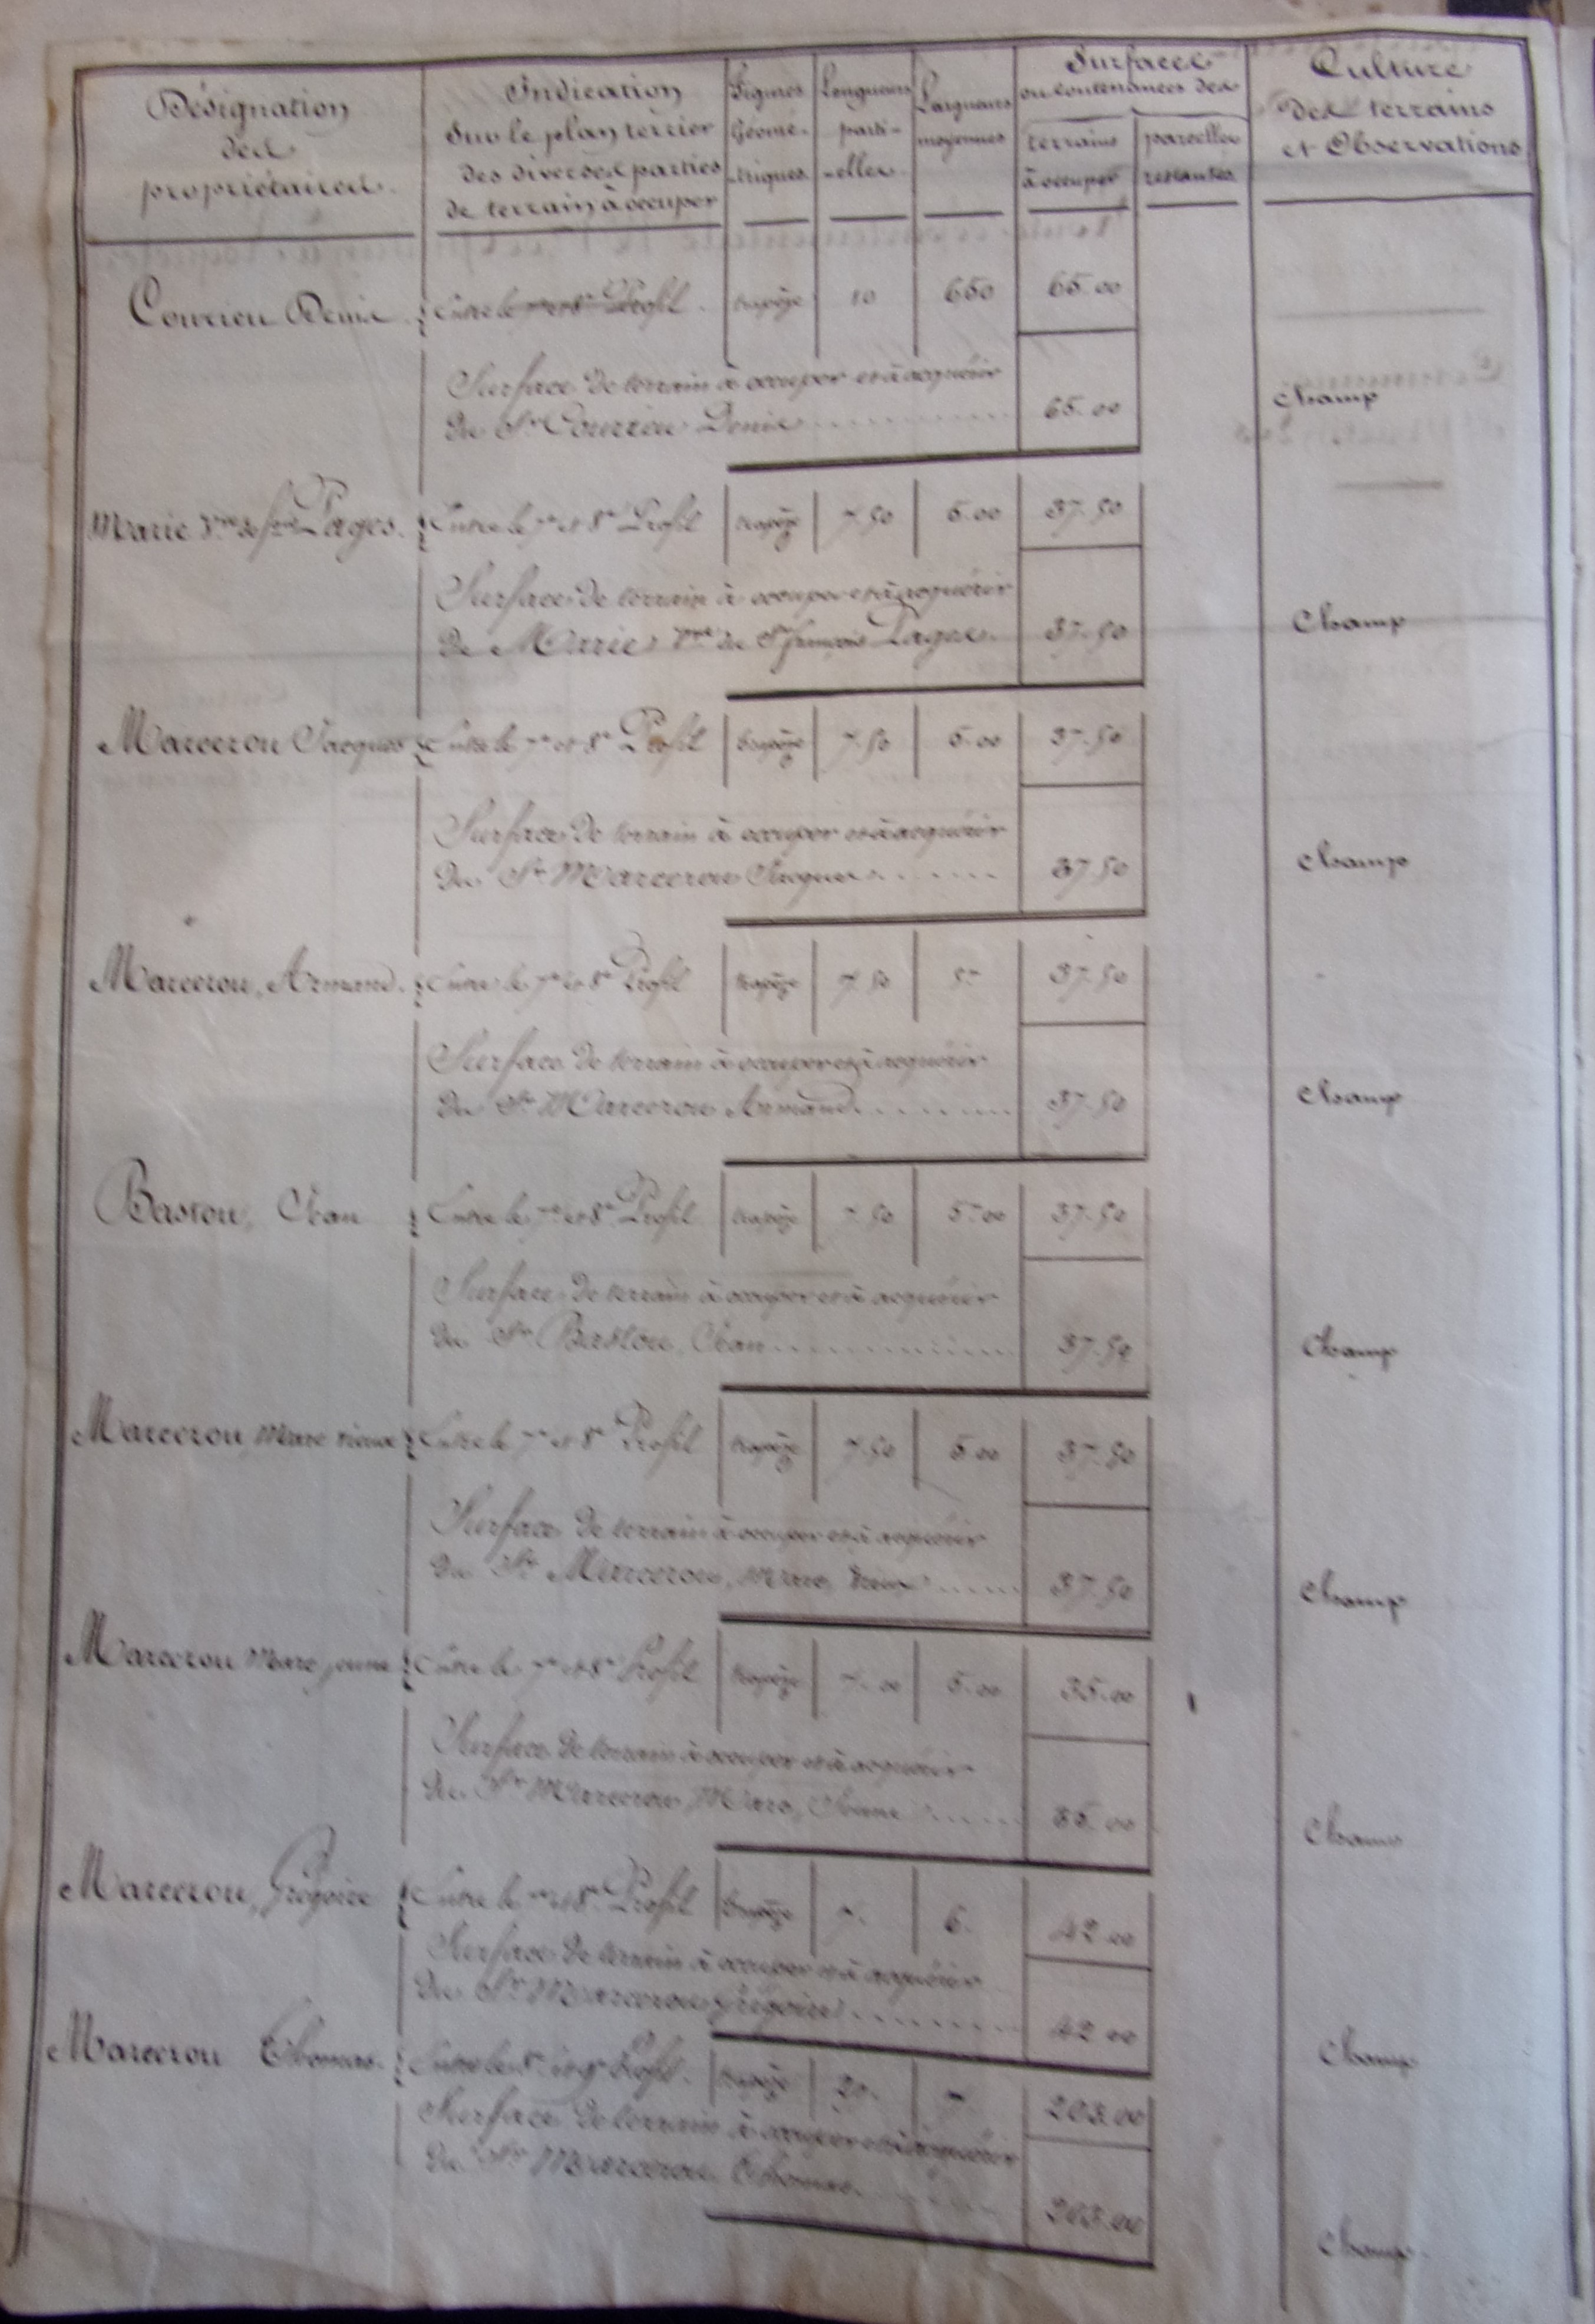 Désignation
des
propriétaires.
Indication
sur le plan terrier
des diverses parties
de terrain à occuper
Figures
Géomé-
-triques.
Longueurs
parti-
-elles.
Largeurs
moyennes
Surfaces
ou contenances des
terrains
à occuper
parcelles
restantes.
Culture
des terrains
et Observations
Courrieu Denis. Entre le 7e et 8e Profil. trapèze 10 650 65.00
Surface de terrain à occuper et à acquérir
du Sr Courrieu Denis 65.00 Champ
Marie Pagès. Entre le 7e et 8e Profil trapèze 7.50 5.00 37.50
Surface de terrain à occuper et à acquérir
de Marie de Sr françois Pagès. 37.50 Champ
Marcerou Jacques Entre le 7e et 8e Profil trapèze 7.50 5.00 37.50
Surface de terrain à occuper et à acquérir
du Sr Marcerou Jacques 37.50 Champ
Marcerou, Armand. Entre le 7e et 8e Profil trapèze 7.50 5" 37.50
Surface de terrain à occuper et à acquérir
du Sr Marcerou Armand 37.50 Champ
Bastou, Jean Entre le 7e et 8e Profil trapèze 7.50 5.00 37.50
Surface de terrain à occuper et à acquérir
du Sr Bastou, Jean 37.50 Champ
Marcerou, Marc vieux Entre le 7e et 8e Profil trapèze 7.50 5.00 37.50
Surface de terrain à occuper et à acquérir
du Sr Marcerou, Marc, vieux 37.50 Champ
Marcerou Marc jeune Entre le 7e et 8e Profil trapèze 7.00 5.00 35.00
Surface de terrain à occuper et à acquérir
du Sr Marcerou, Marc, Jeune 35.00 Champ
Marcerou, Grégoire Entre le 7e et 8e Profil trapèze 7. 6. 42.00
Surface de terrain à occuper et à acquérir
du Sr Marcerou Grégoire 42.00 Champ
Marcerou Thomas. Entre le 8e et 9e Profil. trapèze 29. 7 203.00
Surface de terrain à occuper et à acquérir
du Sr Marcerou Thomas. 203.00 Champ.